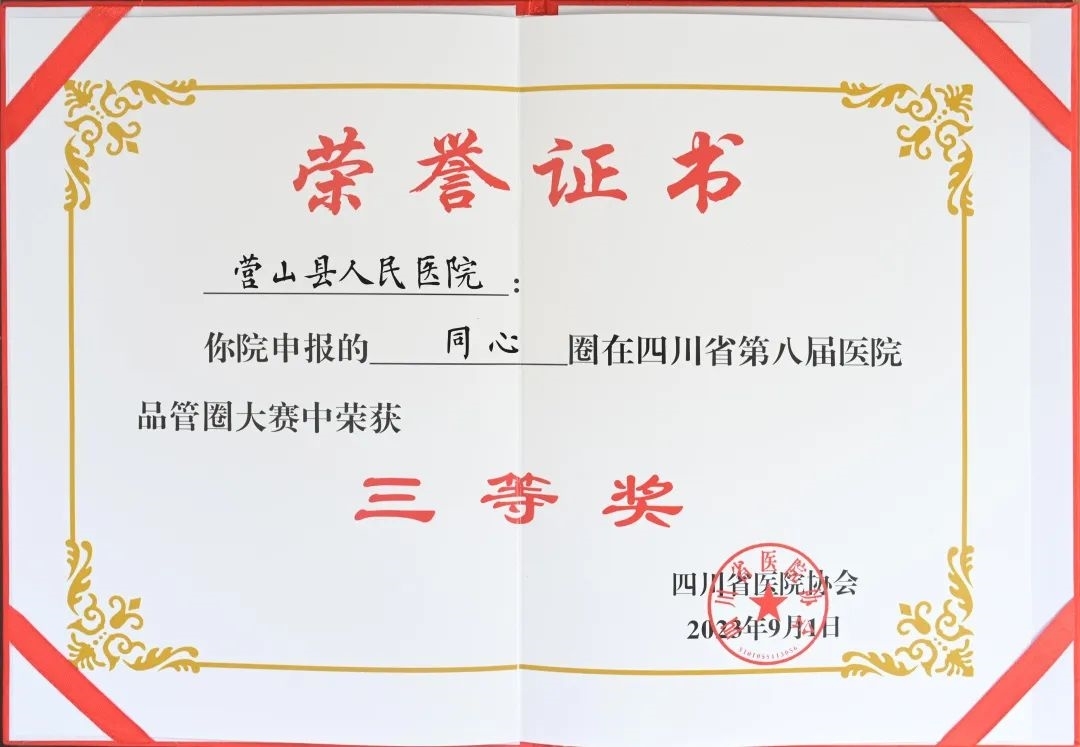 荣誉证书
营山县人民医院：
你院申报的同心圈在四川省第八届医院
品管圈大赛中荣获
三等奖
四川省医院协会
2023年9月1日
四川省医院协会